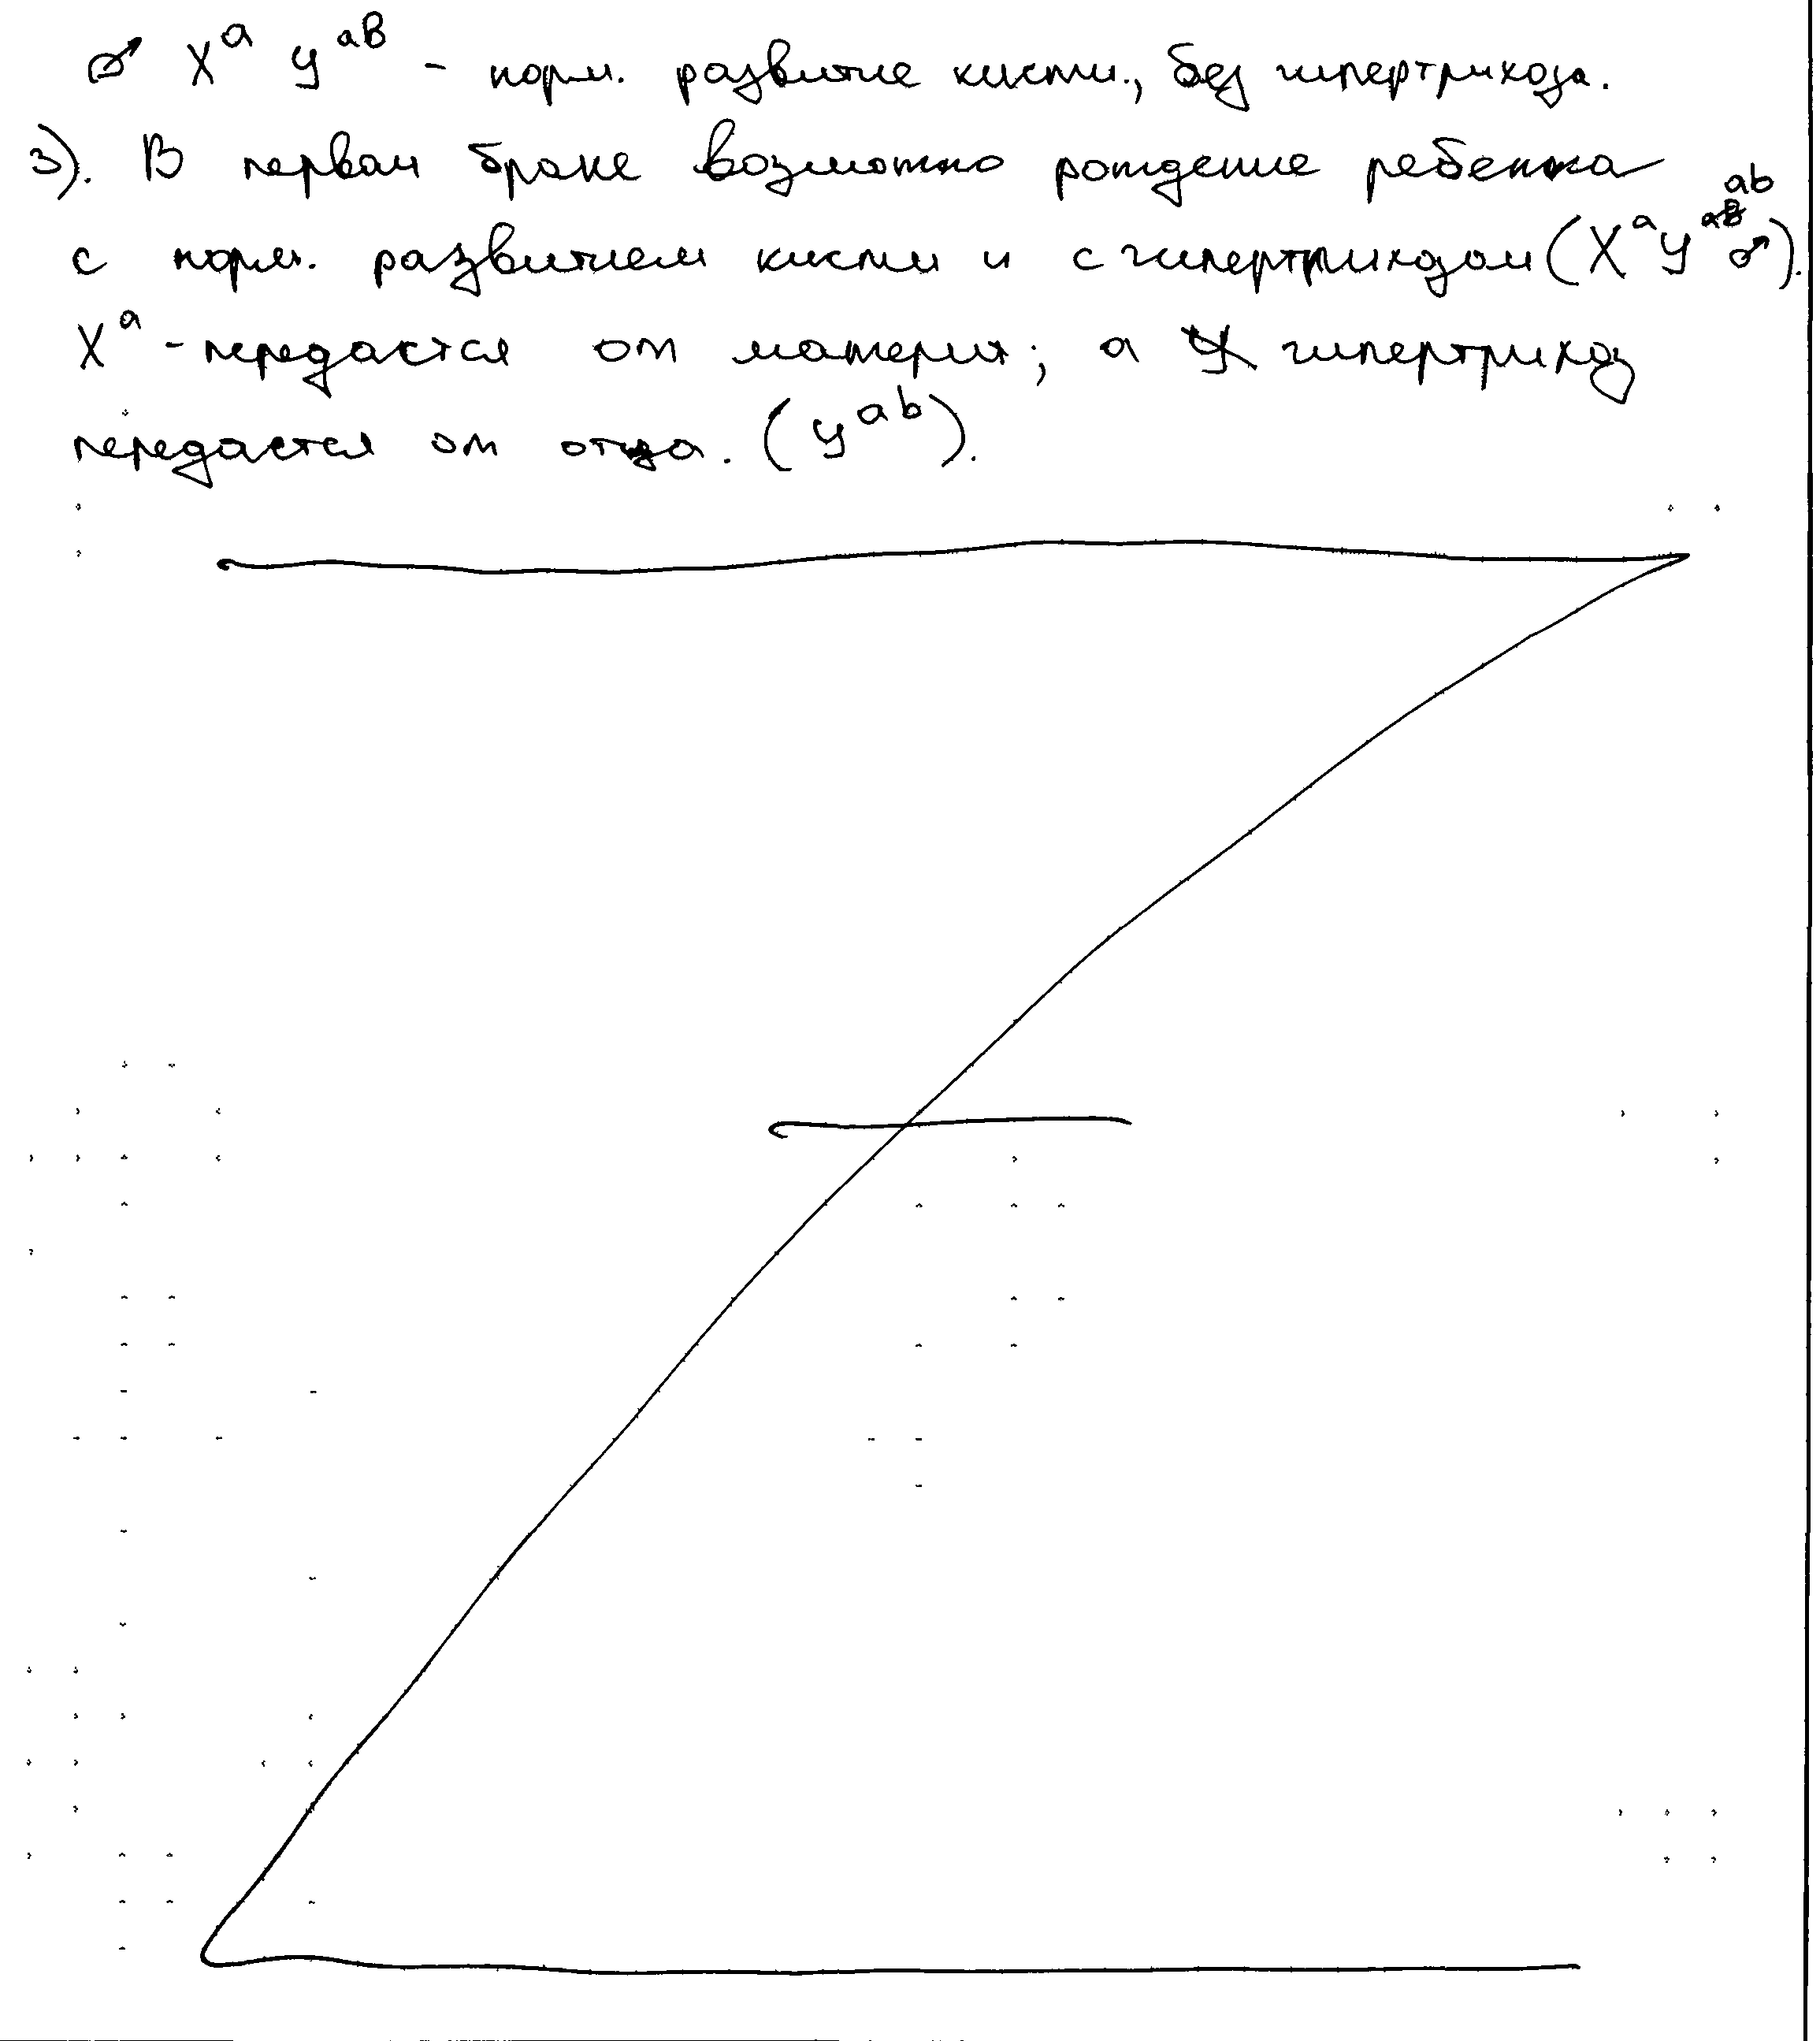 ♂ Xᵃ Yᵃᴮ - норм. развитие кисти., без гипертрихоза.
3). В первом браке возможно рождение ребенка
с норм. развитием кисти и с гипертрихозом (Xᵃ Yᵃᵇ ♂).
Xᵃ - передастся от матери; а гипертрихоз
передастся от отца. (Yᵃᵇ).